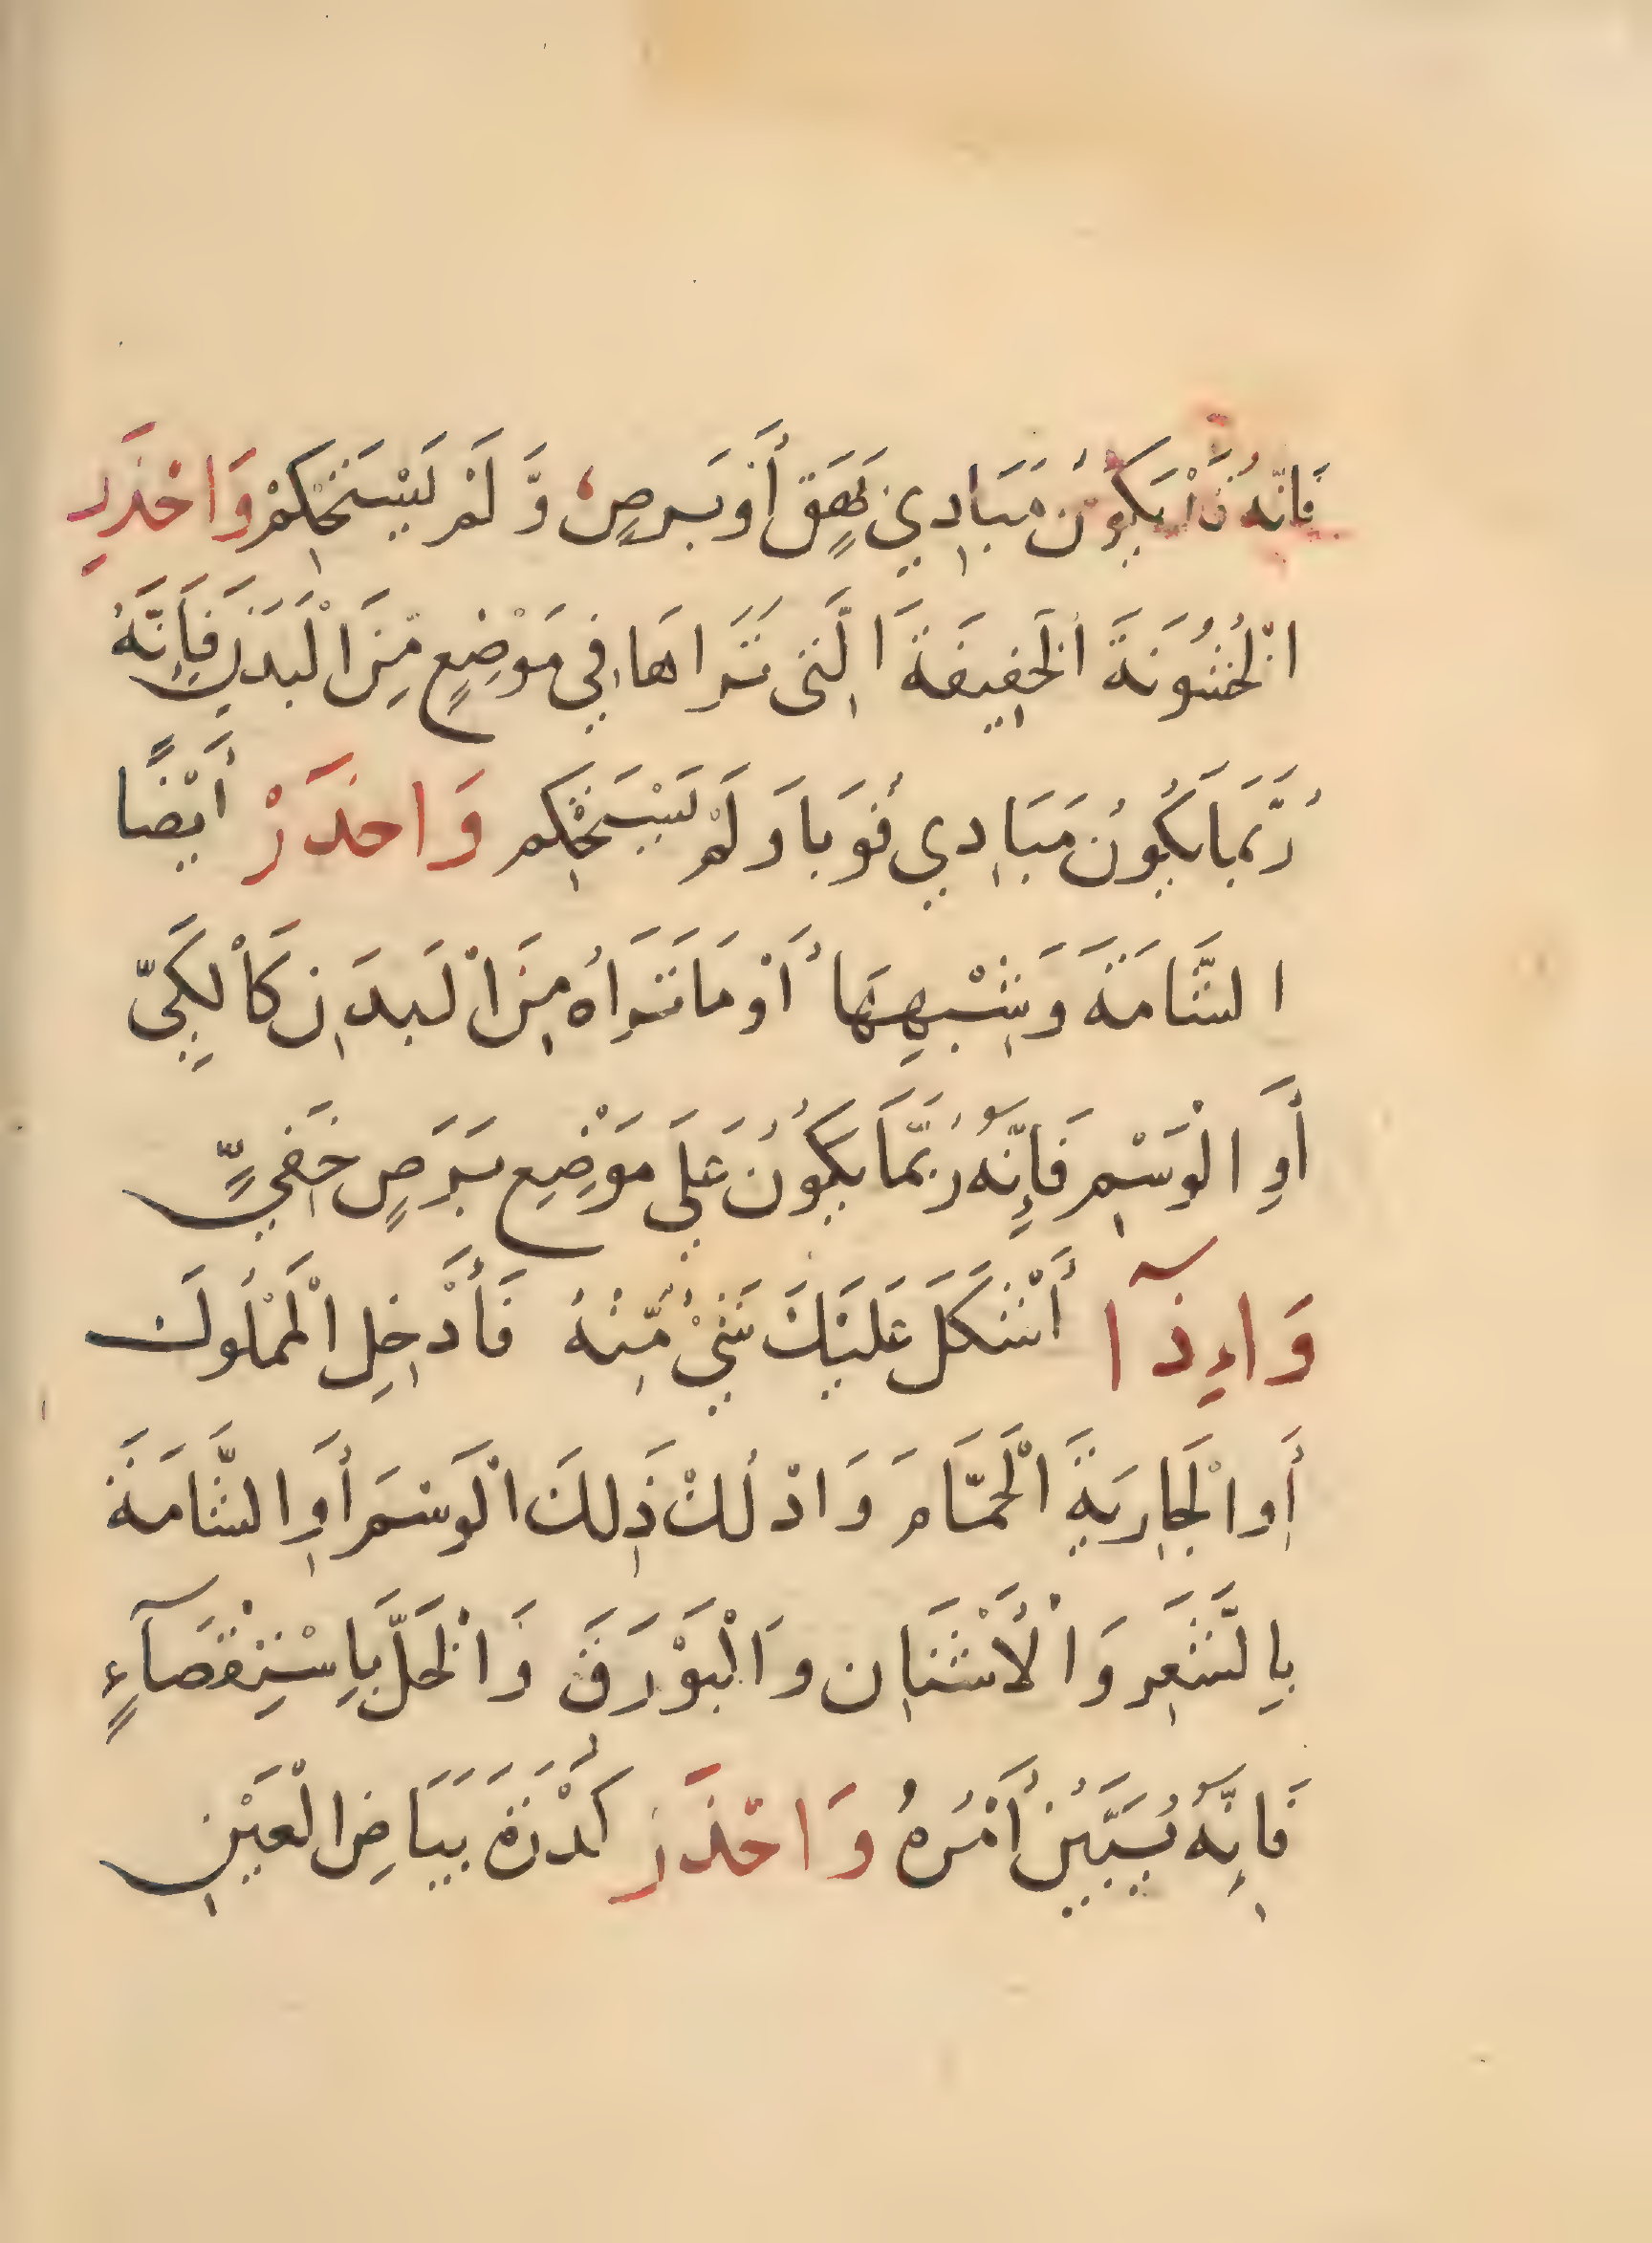 فَإِنَّهُ قَدْ يَكُونُ مَبَادِي بَهَقٍ أَوْ بَرَصٍ وَّلَمْ يَسْتَحْكِمْ وَاحْذَرِ
الْخُشُونَةَ الْخَفِيفَةَ الَّتِي تَرَاهَا فِي مَوْضِعٍ مِّنَ الْبَدَنِ فَإِنَّهُ
رُبَّمَا يَكُونُ مَبَادِي قُوبَا وَلَمْ يَسْتَحْكِم وَاحْذَرْ أَيْضًا
الشَّامَةَ وَشِبْهِهَا أَوْ مَا تَرَاهُ مِنَ الْبَدَنِ كَالْكَيِّ
أَوِ الْوَسْمِ فَإِنَّهُ رُبَّمَا يَكُونُ عَلَى مَوْضِعِ بَرَصٍ خَفِيٍّ
وَإِذَآ أَشْكَلَ عَلَيْكَ شَيْءٌ مِّنْهُ فَأَدْخِلِ الْمَمْلُوكَ
أَوِ الْجَارِيَةَ الْحَمَّامَ وَادْلُكْ ذَلِكَ الْوَسْمَ أَوِ الشَّامَةَ
بِالشَّعَرِ وَالْأُشْنَانِ وَالْبَوْرَقَ وَالْخَلَّ بِاسْتِقْصَآءٍ
فَإِنَّهُ يَتَبَيَّنُ أَمْرُهُ وَاحْذَرْ كُدْرَةَ بَيَاضِ الْعَيْنِ